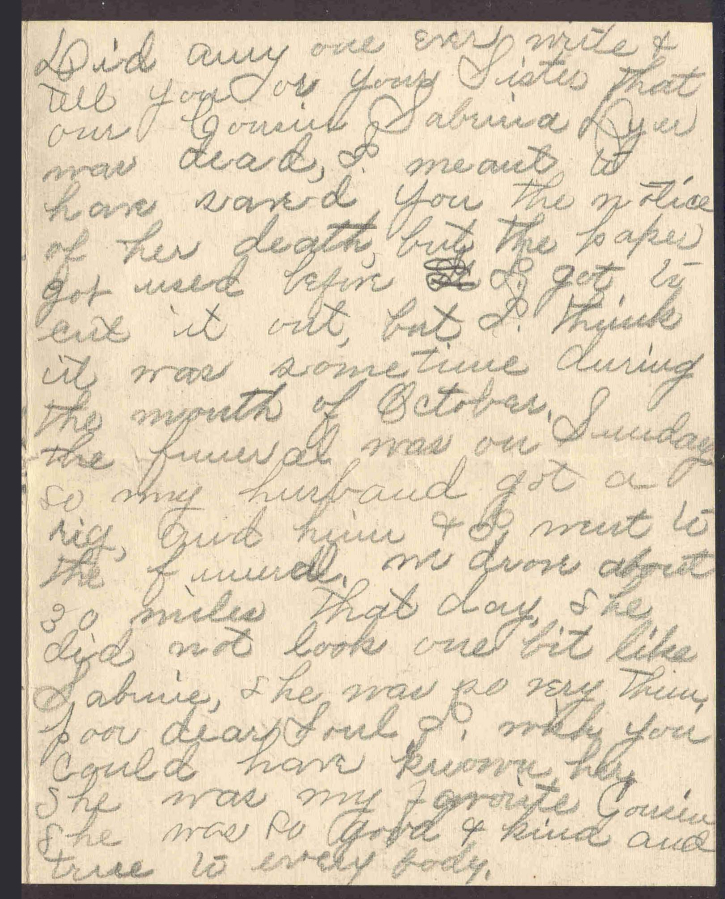 Did any one ever write &
tell you or your Sister that
our Cousin Sabrina Dyer
was dead, I meant to
have saved you the notice
of her death, but the paper
got used before I got to
cut it out, but I think
it was sometime during
the month of October.
the funeral was on Sunday
so my husband got a
rig, and him & I went to
the funeral. we drove about
30 miles that day. she
did not look one bit like
Sabrine, she was so very thin,
poor dear Soul, I wish you
could have known her,
she was my favorite Cousin
she was so good & kind and
true to every body.